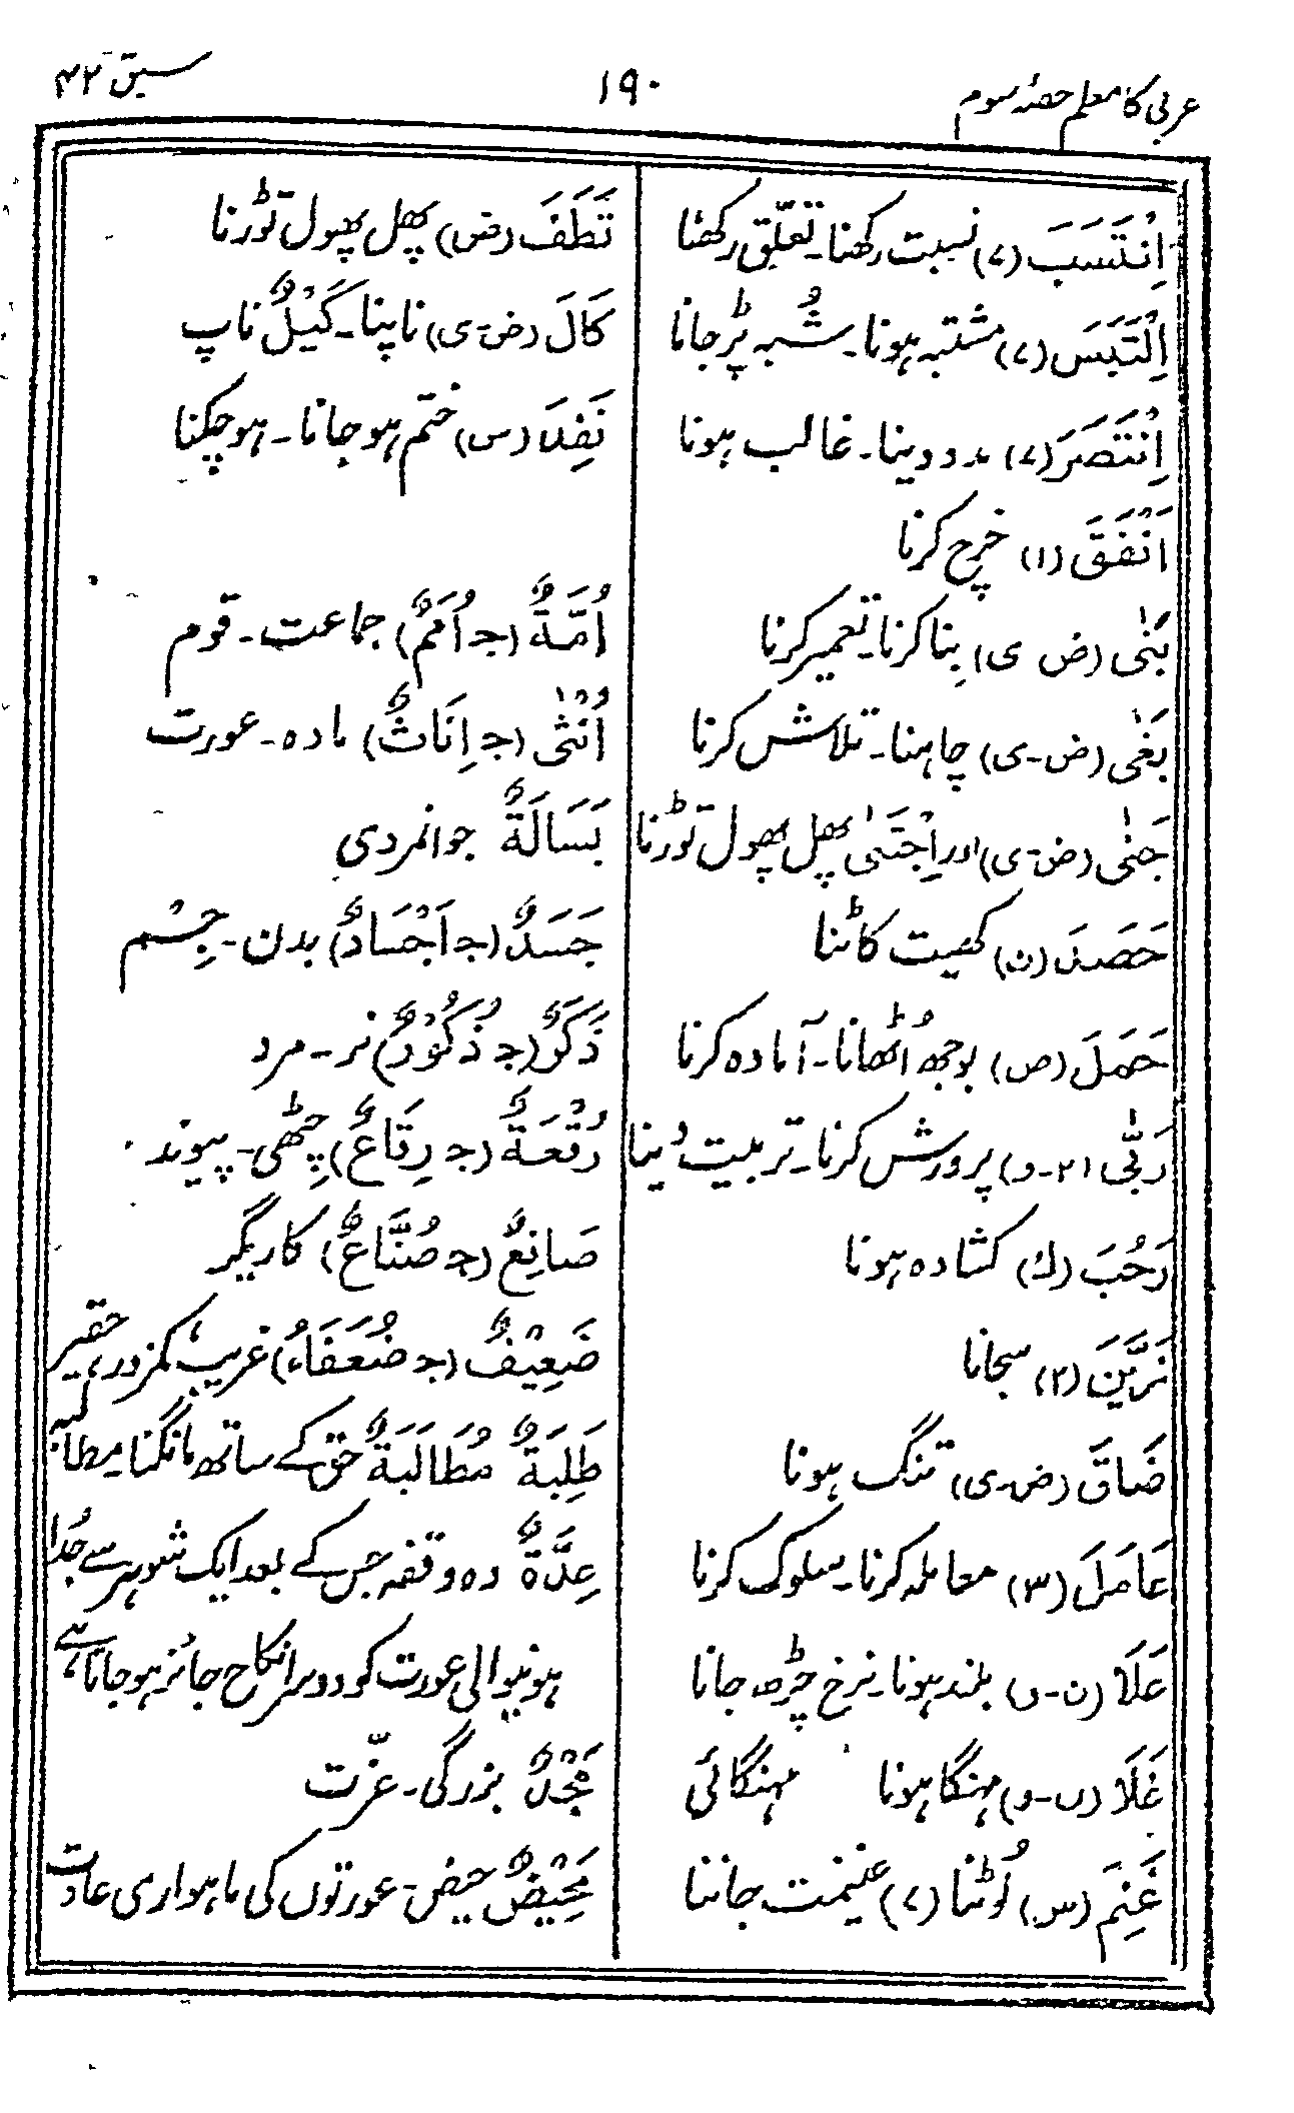 عربی کا معلم حصۂ سوم
۱۹۰
سبق ۴۲
اِنْتَسَبَ (۷) نسبت رکھنا۔ تعلّق رکھنا
اِلْتَبَسَ (۷) مشتبہ ہونا۔ شُبہ پڑ جانا
اِنْتَصَرَ (۷) مدد دینا۔ غالب ہونا
اَنْفَقَ (۱) خرچ کرنا
بَنٰی (ض ی) بِنا کرنا۔ تعمیر کرنا
بَغٰی (ض۔ی) چاہنا۔ تلاش کرنا
جَنٰی (ض۔ی) اور اِجْتَنٰی پھل پھول توڑنا
حَصَدَ (ن) کھیت کاٹنا
حَمَلَ (ض) بوجھ اُٹھانا۔ آمادہ کرنا
رَبّٰی (۲۔و) پرورش کرنا۔ تربیت دینا
رَحُبَ (ك) کشادہ ہونا
زَيَّنَ (۲) سجانا
ضَاقَ (ض۔ی) تنگ ہونا
عَامَلَ (۳) معاملہ کرنا۔ سلوک کرنا
عَلَا (ن۔و) بلند ہونا۔ نرخ چڑھ جانا
غَلَا (ن۔و) مہنگا ہونا مہنگائی
غَنِمَ (س) لُوٹنا (۷) غنیمت جاننا
قَطَفَ (ض) پھل پھول توڑنا
كَالَ (ض۔ی) ناپنا۔ كَيْلٌ ناپ
نَفِدَ (س) ختم ہو جانا۔ ہو چکنا
اُمَّةٌ (ج اُمَمٌ) جماعت۔ قوم
اُنْثٰی (ج اِنَاثٌ) مادہ۔ عورت
بَسَالَةٌ جوانمردی
جَسَدٌ (ج اَجْسَادٌ) بدن۔ جِسْم
ذَكَرٌ (ج ذُكُوْرٌ) نر۔ مرد
رُقْعَةٌ (ج رِقَاعٌ) چِٹھی۔ پیوند
صَانِعٌ (ج صُنَّاعٌ) کاریگر
ضَعِيْفٌ (ج ضُعَفَاءُ) غریب، کمزور، حقیر
طَلِبَةٌ مُطَالَبَةٌ حق کے ساتھ مانگنا۔ مطالبہ
عِدَّةٌ وہ وقفہ جس کے بعد ایک شوہر سے جُدا
ہونیوالی عورت کو دوسرا نکاح جائز ہو جاتا ہے
مَجْدٌ بزرگی۔ عزّت
مَحِيْضٌ حیض۔ عورتوں کی ماہواری عادت